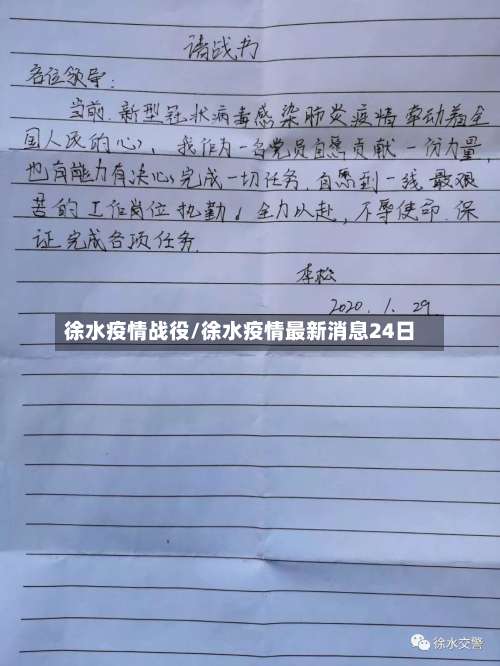 请战书
各位领导:
当前.新型冠状病毒感染肺炎疫情牵动着全
国人民的心,我作为一名党员自愿贡献一份力量,
也有能力有决心完成一切任务.自愿到一线最艰
苦的工作岗位执勤,全力以赴,不辱使命.保
证完成各项任务.
李松
2020.1.29.
徐水疫情战役/徐水疫情最新消息24日
徐水交警